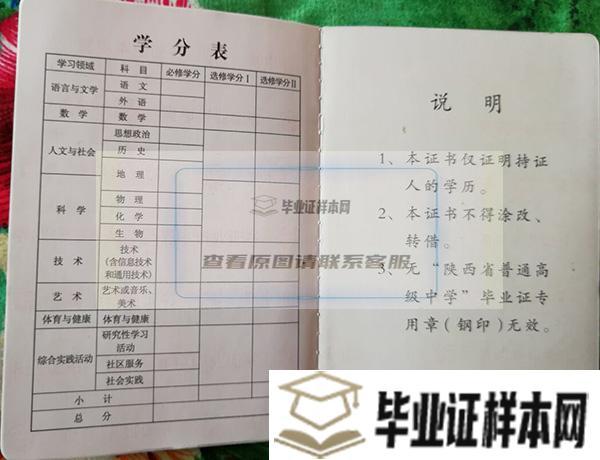 学分表
学习领域 科目 必修学分 选修学分Ⅰ 选修学分Ⅱ
语言与文学 语文
外语
数学 数学
人文与社会 思想政治
历史
地理
科学 物理
化学
生物
技术 技术
(含信息技术
和通用技术)
艺术 艺术或音乐、
美术
体育与健康 体育与健康
综合实践活动 研究性学习
活动
社区服务
社会实践
小计
总分
说明
1、本证书仅证明持证
人的学历。
2、本证书不得涂改、
转借。
3、无“陕西省普通高
级中学”毕业证专
用章(钢印)无效。
毕业证样本网
查看原图请联系客服
毕业证样本网